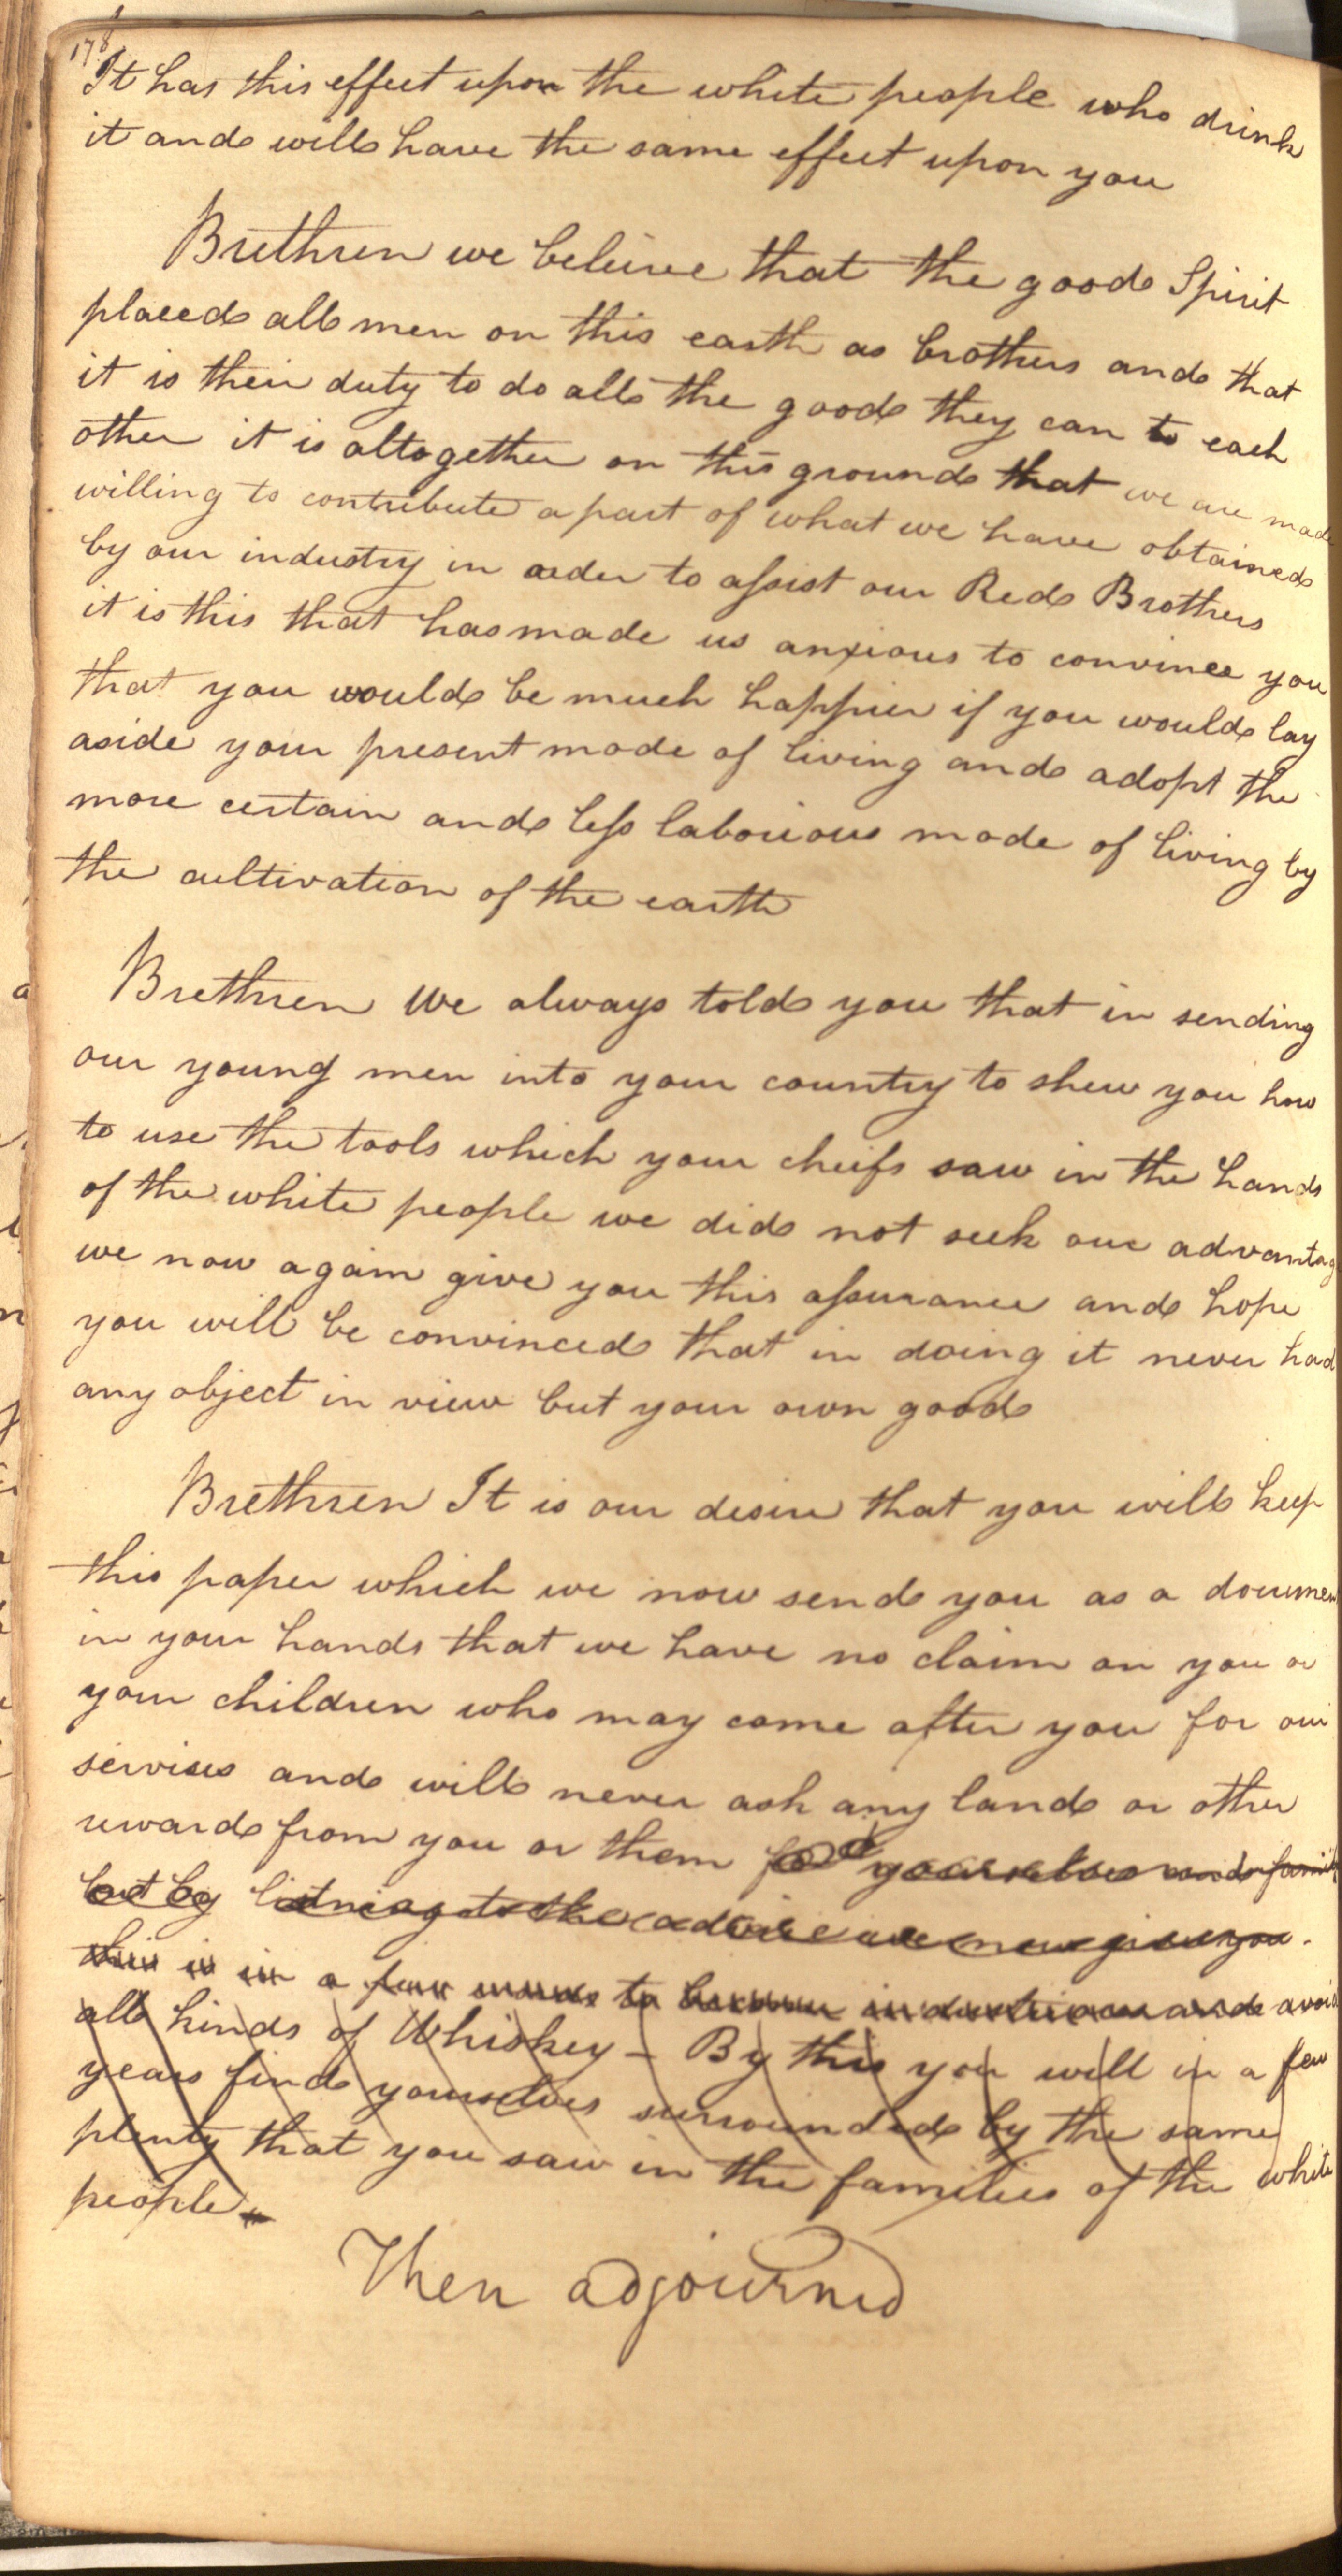 178
It has this effect upon the white people who drink
it and will have the same effect upon you
Brethren we beleive that the good Spirit
placed all men on this earth as brothers and that
it is their duty to do all the good they can to each
other it is altogether on this ground that we are made
willing to contribute a part of what we have obtained
by our industry in order to assist our Red Brothers
it is this that has made us anxious to convince you
that you would be much happier if you would lay
aside your present mode of living and adopt the
more certain and less laborious mode of living by
the cultivation of the earth
Brethren We always told you that in sending
our young men into your country to shew you how
to use the tools which your cheifs saw in the hands
of the white people we did not seek our advantag
we now again give you this assurance and hope
you will be convinced that in doing it never had
any object in view but your own good
Brethren It is our desire that you will keep
this paper which we now send you as a documen
in your hands that we have no claim on you or
your children who may come after you for our
servises and will never ask any land or other
reward from you or them for yourselves and famil
but by listning to the advice we now give you.
this is in a few words to become industrious and avoid
all kinds of Whiskey - By this you will in a few
years find yourselves surrounded by the same
plenty that you saw in the families of the white
people -
Then adjourned